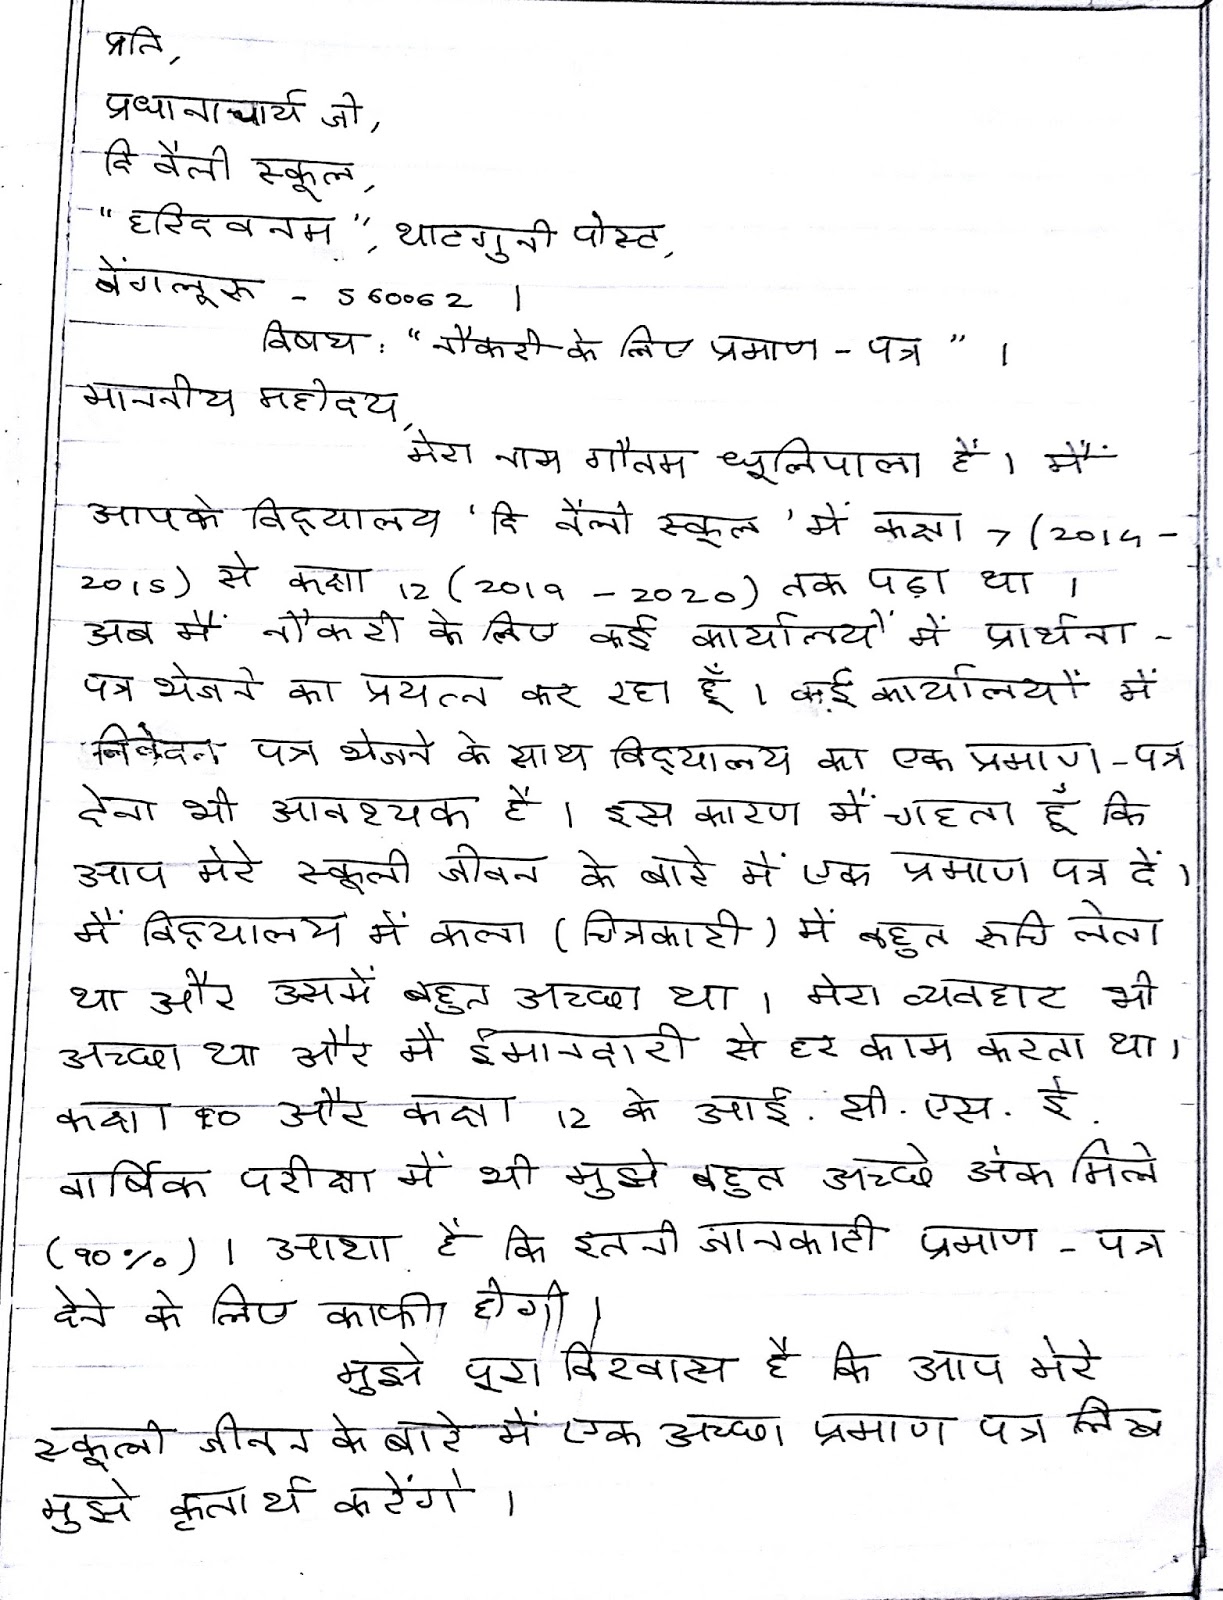 प्रति,
प्रधानाचार्य जी,
दि वैली स्कूल,
"हरिदवनम", थाटगुनी पोस्ट,
बेंगलूरू - 560062 ।
विषय : "नौकरी के लिए प्रमाण - पत्र" ।
माननीय महोदय,
मेरा नाम गौतम धूलिपाला है । मैं
आपके विद्यालय 'दि वैली स्कूल' में कक्षा 7 (2014 -
2015) से कक्षा 12 (2019 - 2020) तक पढ़ा था ।
अब मैं नौकरी के लिए कई कार्यालयों में प्रार्थना -
पत्र भेजने का प्रयत्न कर रहा हूँ । कई कार्यालयों में
निवेदन पत्र भेजने के साथ विद्यालय का एक प्रमाण-पत्र
देना भी आवश्यक है । इस कारण मैं चाहता हूँ कि
आप मेरे स्कूली जीवन के बारे में एक प्रमाण पत्र दें ।
मैं विद्यालय में कला (चित्रकारी) में बहुत रूचि लेता
था और उसमें बहुत अच्छा था । मेरा व्यवहार भी
अच्छा था और मै ईमानदारी से हर काम करता था ।
कक्षा 10 और कक्षा 12 के आई. सी. एस. ई.
वार्षिक परीक्षा में भी मुझे बहुत अच्छे अंक मिले
(90%) । आशा है कि इतनी जानकारी प्रमाण - पत्र
देने के लिए काफी होगी ।
मुझे पूरा विश्वास है कि आप मेरे
स्कूली जीवन के बारे में एक अच्छा प्रमाण पत्र लिख
मुझे कृतार्थ करेंगे ।